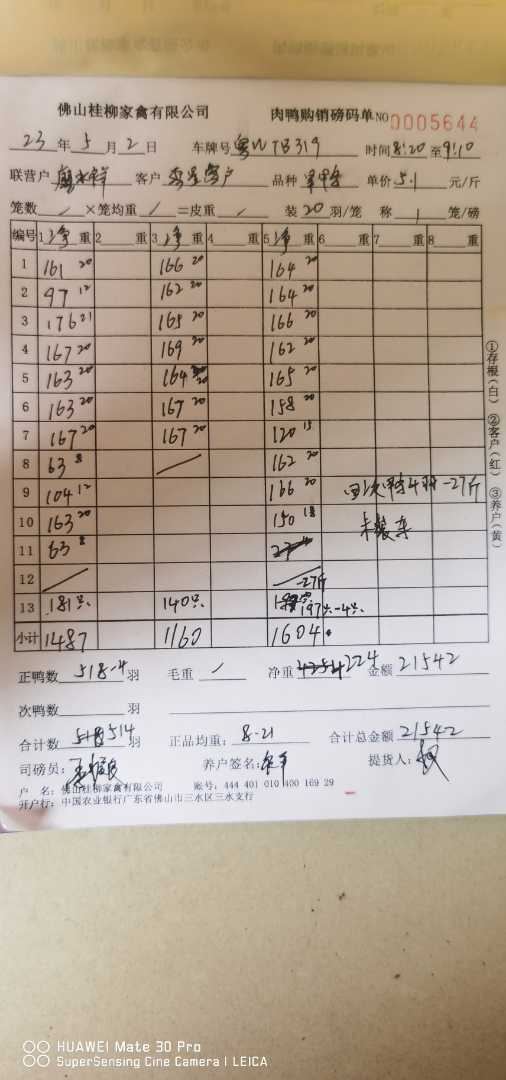 佛山桂柳家禽有限公司 肉鸭购销磅码单 NO 0005644
23 年 5 月 2 日 车牌号 时间 8:20 至 9:10
联营户 客户 品种 单价 5.1 元/斤
笼数 / ×笼均重 / =皮重 / 装 20 羽/笼 称 1 笼/磅
编号 1 净 重 2 重 3 净 重 4 重 5 净 重 6 重 7 重 8 重
1 161 20 166 20 164 20
2 97 12 162 20 164 20
3 176 21 165 20 166 20
4 167 20 169 20 162 20
5 163 20 164 20 165 20
6 163 20 167 20 158 20
7 167 20 167 20 120 15
8 63 8 / 162 20
9 104 12 166 20 4羽 -27斤
10 163 20 150 18 未装车
11 63 8 27
12 / / -27斤
13 181只 140只 197只-4只
小计 1487 1160 1604
正鸭数 518-4 羽 毛重 / 净重 4224 金额 21542
次鸭数 羽
合计数 518 514 羽 正品均重: 8.21 合计总金额 21542
司磅员: 养户签名: 提货人:
户 名: 佛山桂柳家禽有限公司 账号: 444 401 010 400 169 29
开户行: 中国农业银行广东省佛山市三水区三水支行
①存根(白) ②客户(红) ③养户(黄)
HUAWEI Mate 30 Pro
SuperSensing Cine Camera | LEICA